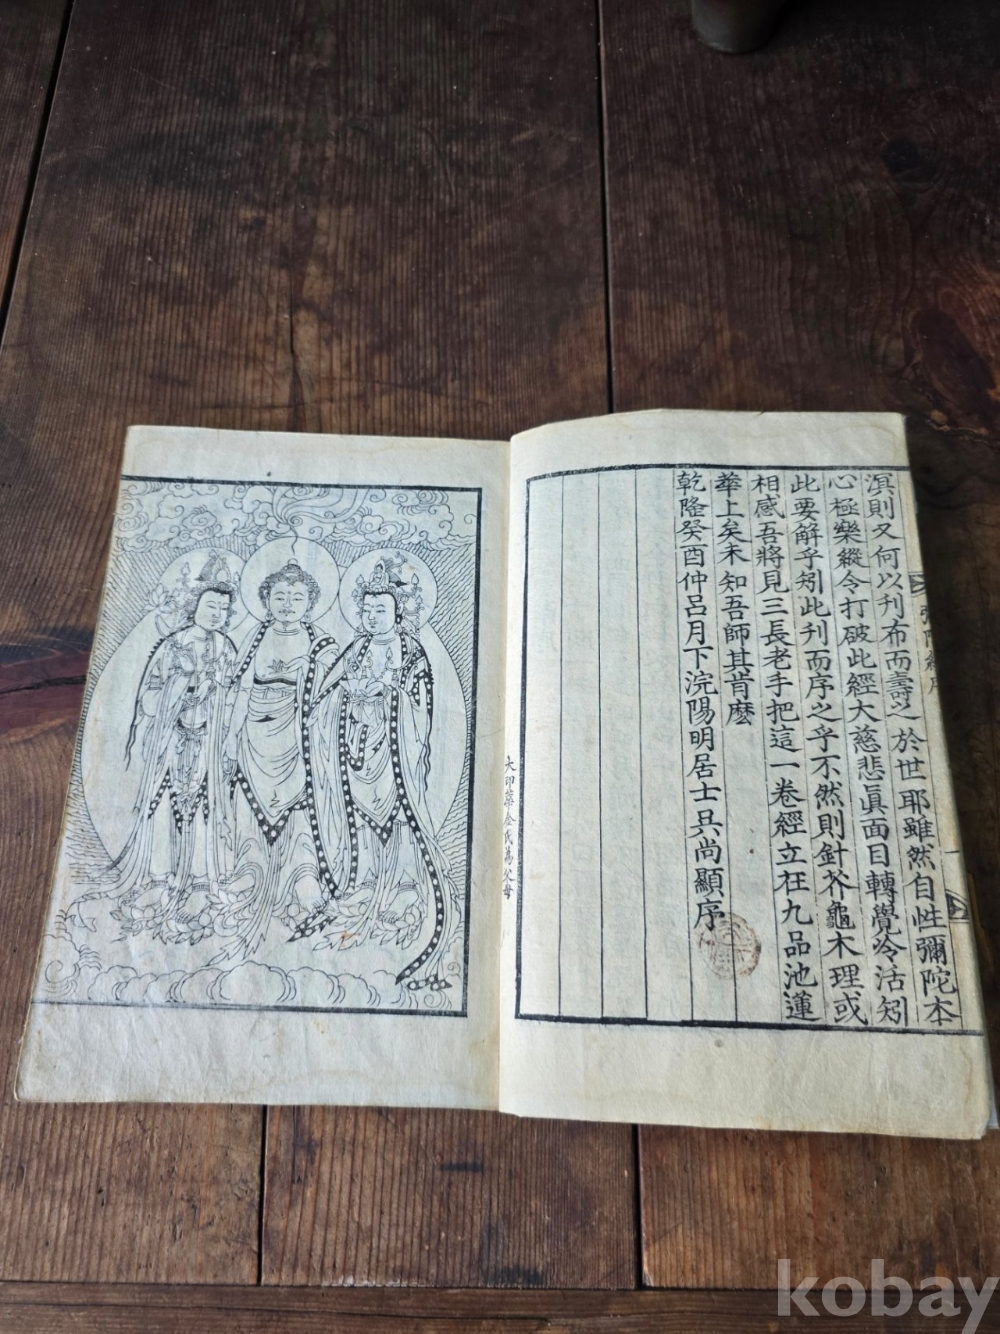 溟則又何以刋布而壽之於世耶雖然自性彌陀本
心極樂縱令打破此經大慈悲眞面目轉覺冷活矧
此要解乎矧此刋而序之乎不然則針芥龜木理或
相感吾將見三長老手把這一卷經立在九品池蓮
華上矣未知吾師其肯麽
乾隆癸酉仲呂月下浣陽明居士吳尚顯序
大卬華金氏爲父母
kobay